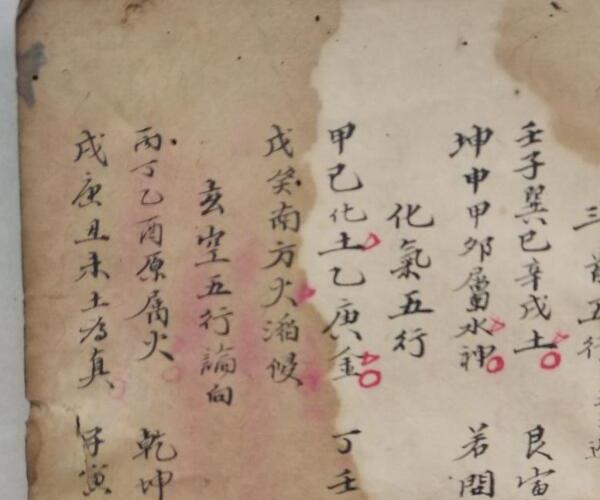 三 五行
壬子巽巳辛戌土 艮寅
坤申甲卯屬水神 若問
化氣五行
甲己化土乙庚金 丁壬
戊癸南方火滔候
玄空五行論向
丙丁乙酉原属火 乾坤
戌庚丑未土為真 子寅